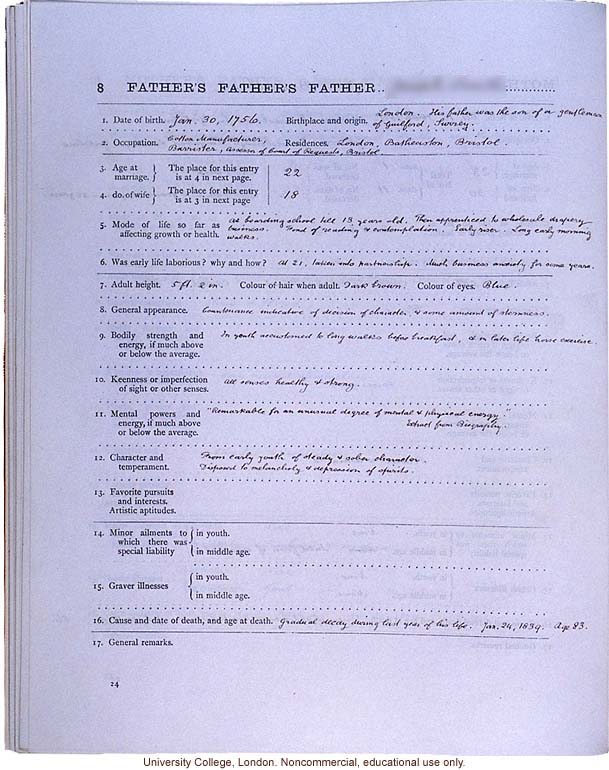 8 FATHER'S FATHER'S FATHER
1. Date of birth. Jan. 30, 1756. Birthplace and origin. London. His father was the son of a gentleman
of Guilford, Surrey.
2. Occupation. Cotton Manufacturer, Residences. London, Batheaston, Bristol.
Barrister, Assessor of Court of Requests, Bristol.
3. Age at marriage. } The place for this entry is at 4 in next page. 22
4. do. of wife } The place for this entry is at 3 in next page 18
5. Mode of life so far as affecting growth or health. At boarding school till 13 years old. Then apprenticed to wholesale drapery
business. Fond of reading & contemplation. Early riser. Long early morning
walks.
6. Was early life laborious? why and how? At 21, taken into partnership. Much business anxiety for some years.
7. Adult height. 5 ft. 2 in. Colour of hair when adult. Dark brown. Colour of eyes. Blue.
8. General appearance. Countenance indicative of decision of character, & some amount of sternness.
9. Bodily strength and energy, if much above or below the average. In youth accustomed to long walks before breakfast, & in later life horse exercise.
10. Keenness or imperfection of sight or other senses. All senses healthy & strong.
11. Mental powers and energy, if much above or below the average. "Remarkable for an unusual degree of mental & physical energy."
Extract from Biography.
12. Character and temperament. From early youth of steady & sober character.
Disposed to melancholy & depression of spirits.
13. Favorite pursuits and interests.
Artistic aptitudes.
14. Minor ailments to which there was special liability { in youth.
in middle age.
15. Graver illnesses { in youth.
in middle age.
16. Cause and date of death, and age at death. Gradual decay during last year of his life. Jan. 24, 1839. Age 83.
17. General remarks.
24
University College, London. Noncommercial, educational use only.